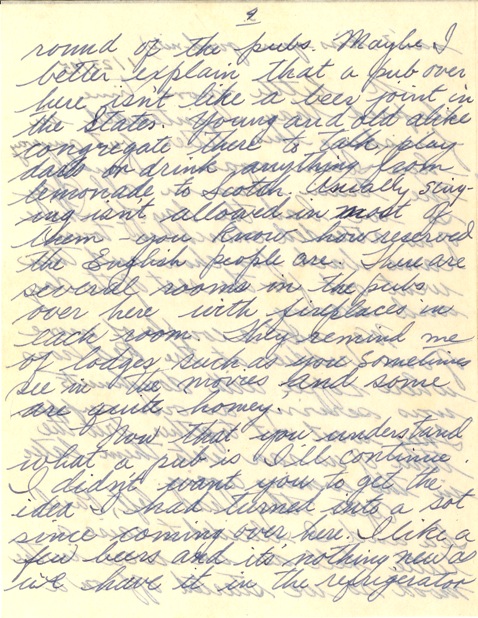 9.
round of the pubs. Maybe I
better explain that a pub over
here isn't like a beer joint in
the States. Young and old alike
congregate there to talk, play
darts or drink anything from
lemonade to Scotch. Usually sing-
ing isn't allowed in most of
them - you know how reserved
the English people are. There are
several rooms in the pubs
over here with fireplaces in
each room. They remind me
of lodges such as you sometimes
see in the movies and some
are quite homey.
Now that you understand
what a pub is I'll continue.
I didn't want you to get the
idea I had turned into a sot
since coming over here. I like a
few beers and it's nothing new as
we have it in the refrigerator